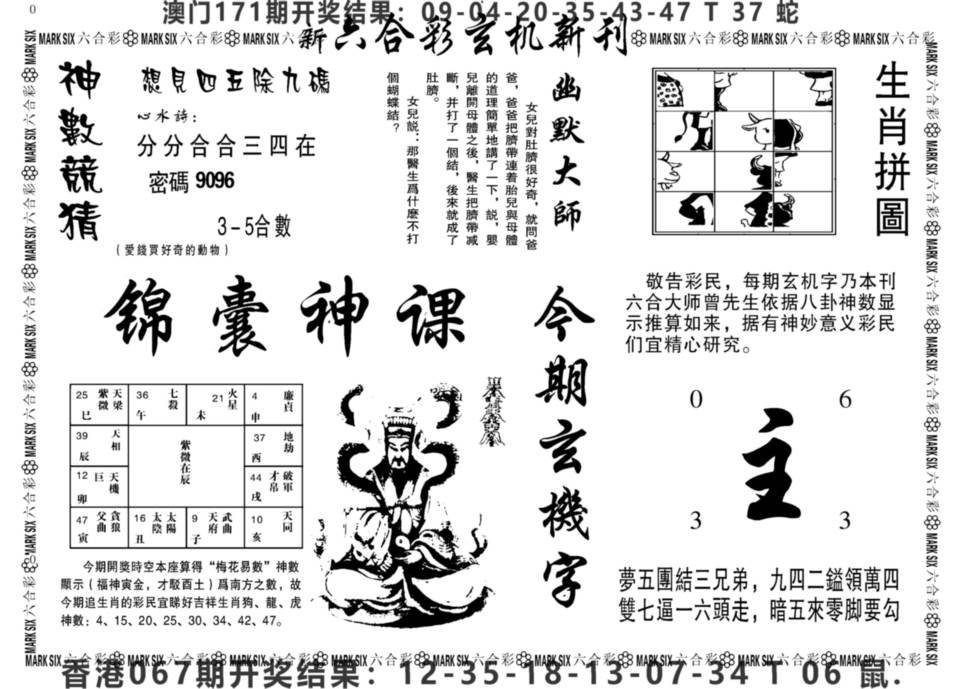 0
澳门171期开奖结果：09-04-20-35-43-47 T 37 蛇
MARK SIX 六合彩 MARK SIX 六合彩 MARK SIX 六合彩
新六合彩玄机新刊
MARK SIX 六合彩 MARK SIX 六合彩 MARK SIX 六合彩
神數競猜
想見四五除九碼
心水詩：
分分合合三四在
密碼 9096
3－5合數
（愛錢買好奇的動物）
幽默大師
女兒對肚臍很好奇，就問爸
爸，爸爸把臍帶連着胎兒與母體
的道理簡單地講了一下，説，嬰
兒離開母體之後，醫生把臍帶减
斷，并打了一個結，後來就成了
肚臍。
女兒説：那醫生爲什麼不打
個蝴蝶結？
生肖拼圖
敬告彩民，每期玄机字乃本刊
六合大师曾先生依据八卦神数显
示推算如来，据有神妙意义彩民
们宜精心研究。
锦囊神课
今期玄機字
25 紫微 天梁 巳
36 七殺 午
21 火星 未
4 廉貞 申
39 天相 辰
紫微在辰
37 地劫 酉
12 巨 天機 卯
44 才帛 破軍 戌
47 父曲 貪狼 寅
16 太陰 太陽 丑
9 天府 武曲 子
10 天同 亥
今期開獎時空本座算得“梅花易數”神數
顯示（福神寅金，才駁酉土）爲南方之數，故
今期追生肖的彩民宜睇好吉祥生肖狗、龍、虎
神數：4、15、20、25、30、34、42、47。
0 6
主
3 3
夢五團結三兄弟，九四二鎰領萬四
雙七逼一六頭走，暗五來零脚要勾
MARK SIX 六合彩 MARK SIX 六合彩 MARK SIX 六合彩 MARK SIX 六合彩 MARK SIX 六合彩 MARK SIX 六合彩 MARK SIX 六合彩 MARK SIX 六合彩
香港067期开奖结果：12-35-18-13-07-34 T 06 鼠.